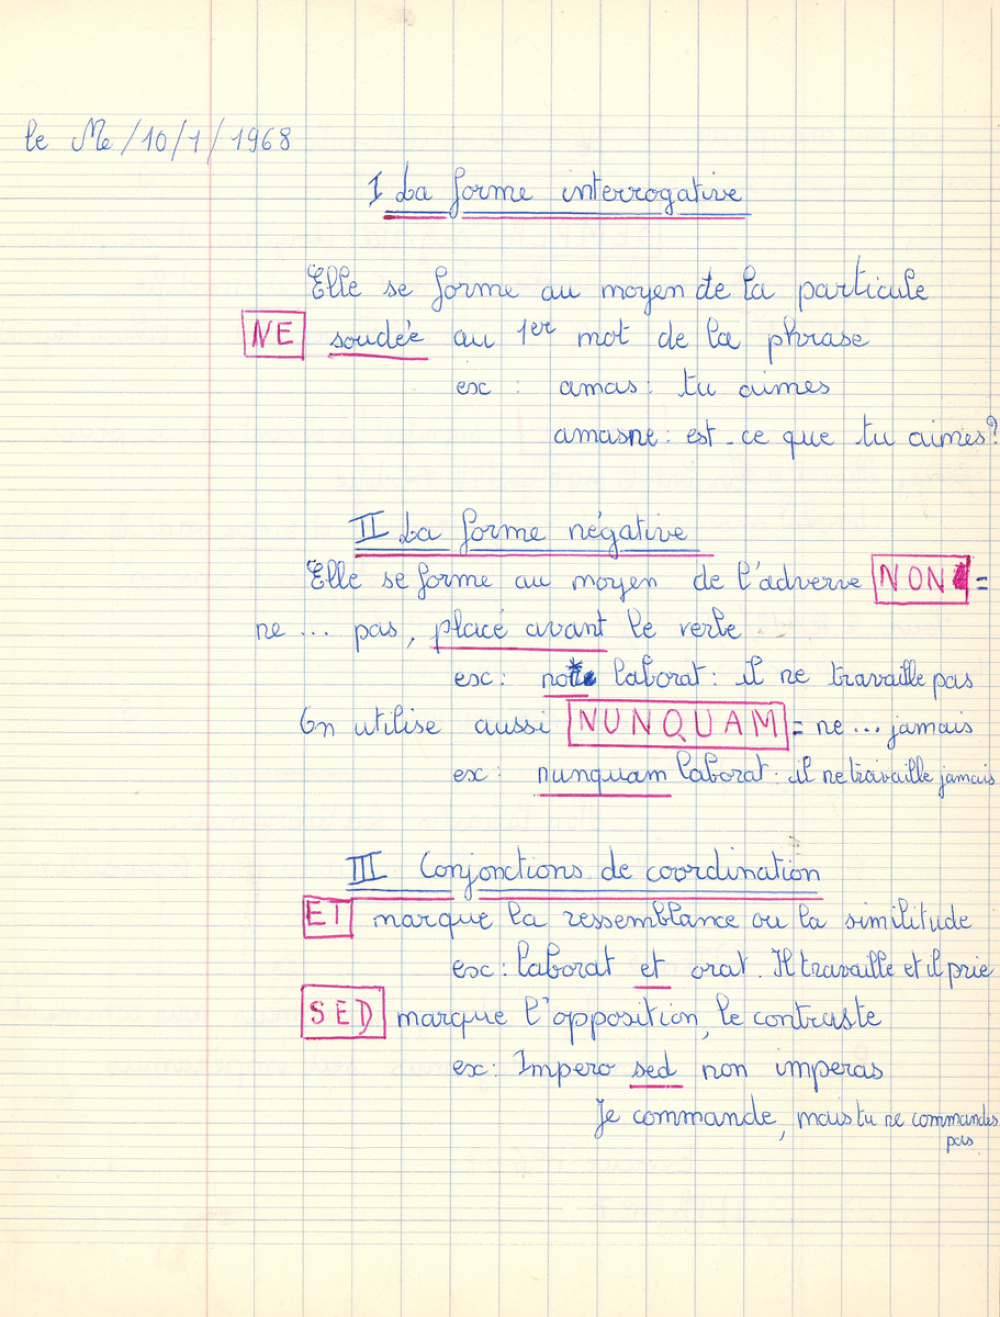 le Me/10/1/1968
I La forme interrogative
Elle se forme au moyen de la particule
NE soudée au 1er mot de la phrase
ex : amas : tu aimes
amasne : est-ce que tu aimes ?
II La forme négative
Elle se forme au moyen de l'adverve NON =
ne ... pas, placé avant le verbe
ex : non laborat : il ne travaille pas
On utilise aussi NUNQUAM = ne ... jamais
ex : nunquam laborat : il ne travaille jamais
III Conjonctions de coordination
ET marque la ressemblance ou la similitude
ex : laborat et orat. Il travaille et il prie
SED marque l'opposition, le contraste
ex : Impero sed non imperas
Je commande, mais tu ne commandes
pas